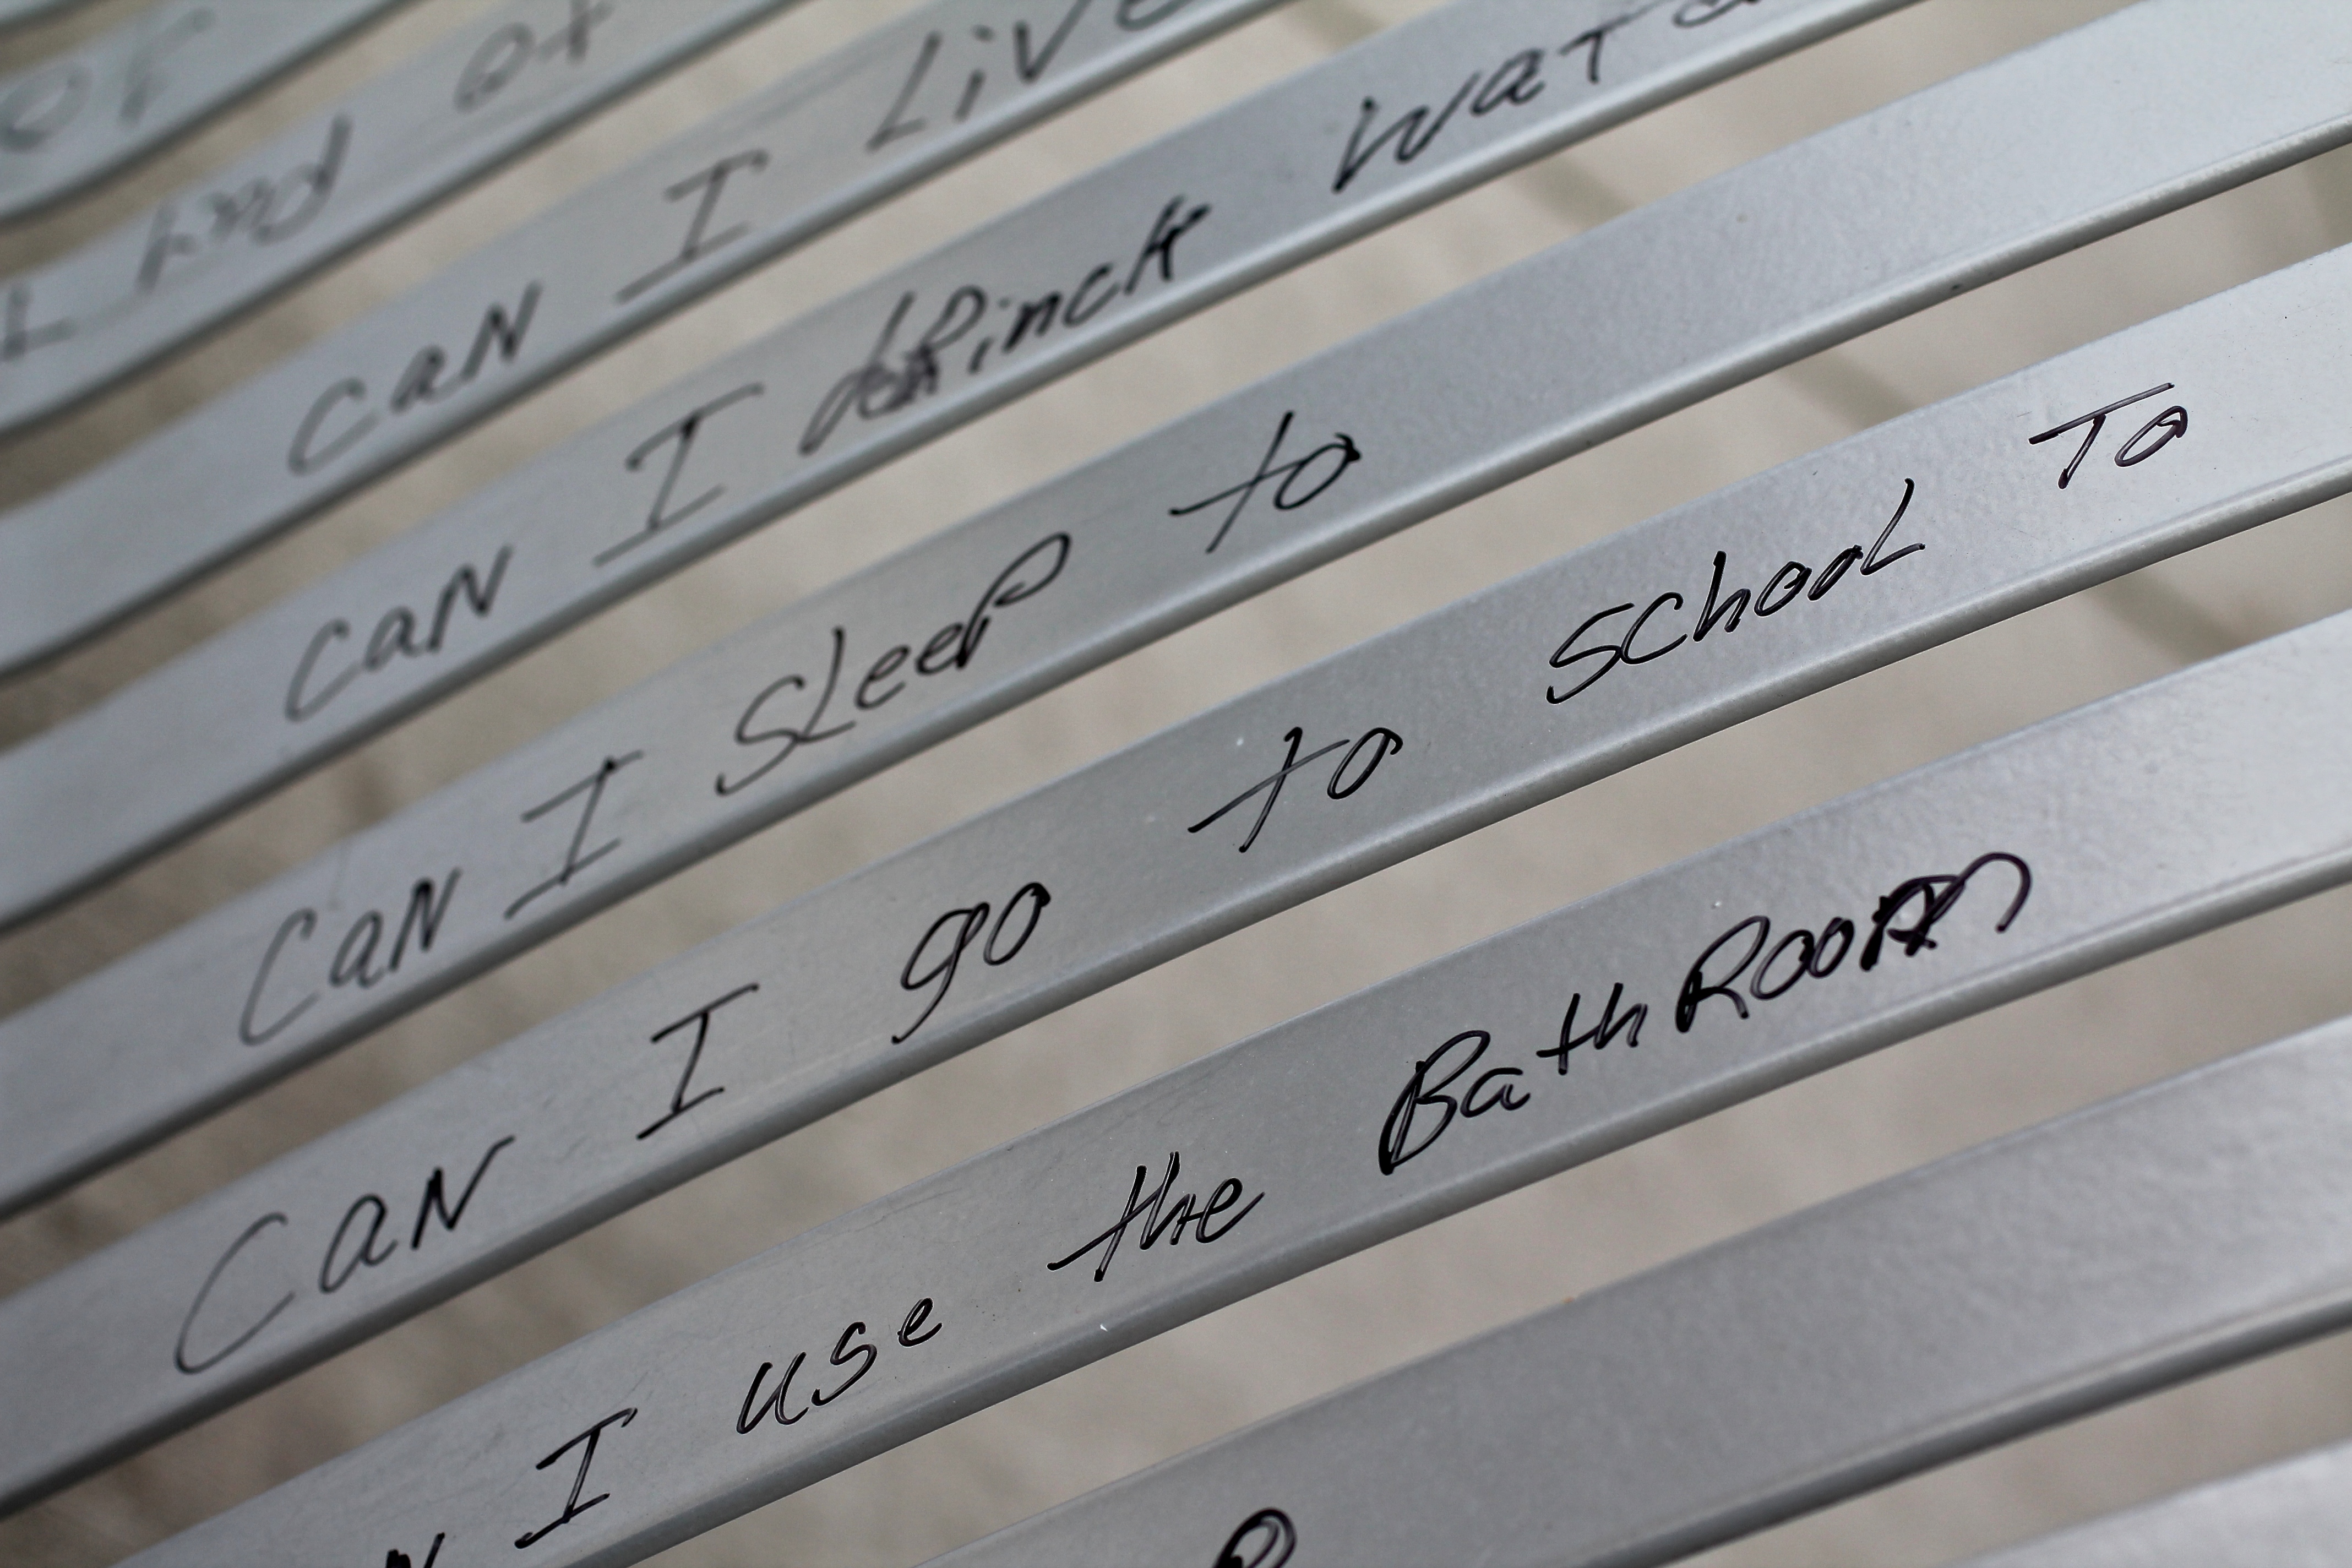 CAN I Live
CAN I dRinck Wat
CaN I SLeeP to
CAN I go to SchooL To
I use the BathRoom